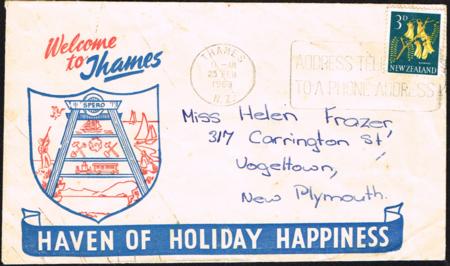 Welcome
to Thames
SPERO
THAMES
25 FEB
N.Z.
ADDRESS TELE
TO A PHONE ADDRESS
3D
NEW ZEALAND
Miss Helen Frazer
317 Carrington St
Vogeltown,
New Plymouth.
HAVEN OF HOLIDAY HAPPINESS